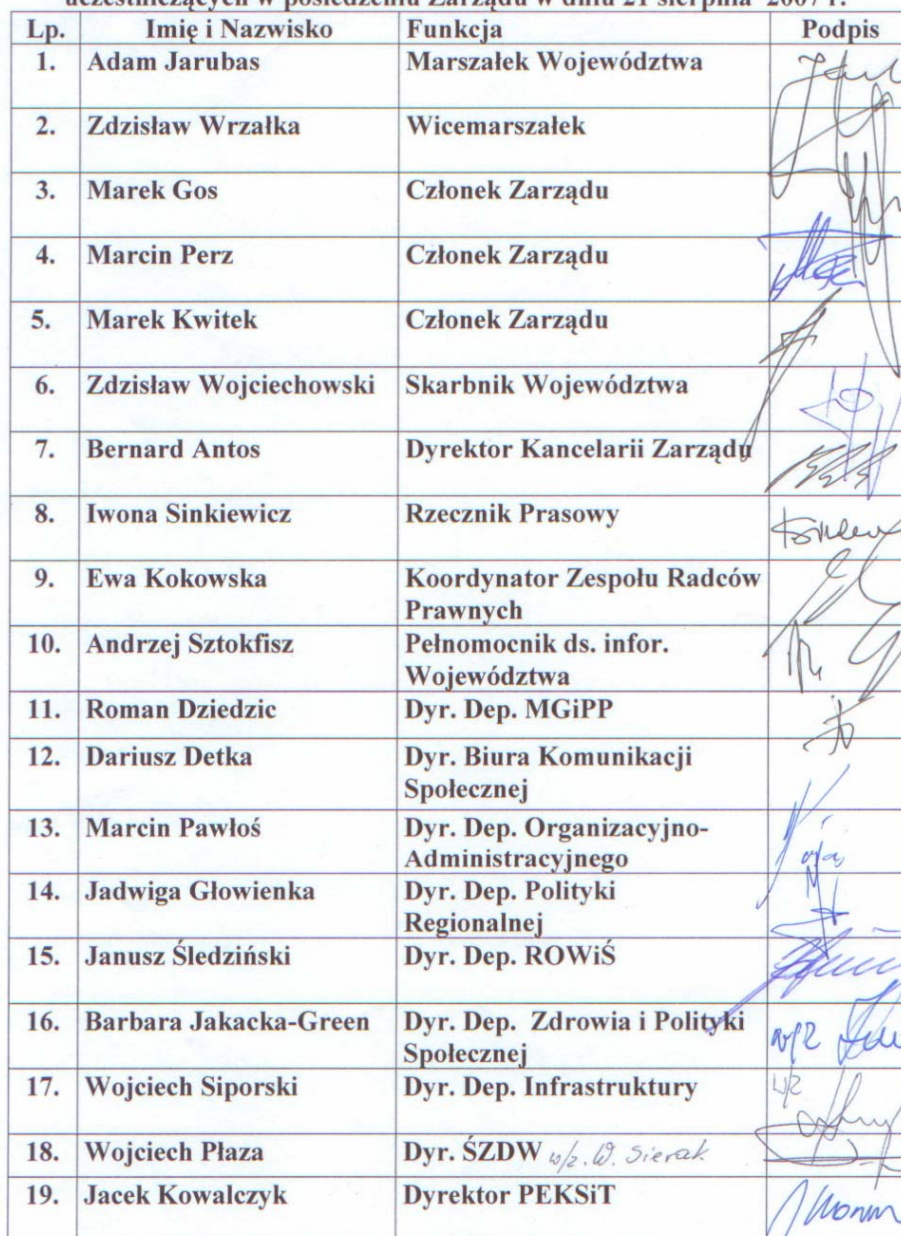 uczestniczących w posiedzeniu Zarządu w dniu 21 sierpnia 2007 r.
Lp. Imię i Nazwisko Funkcja Podpis
1. Adam Jarubas Marszałek Województwa
2. Zdzisław Wrzałka Wicemarszałek
3. Marek Gos Członek Zarządu
4. Marcin Perz Członek Zarządu
5. Marek Kwitek Członek Zarządu
6. Zdzisław Wojciechowski Skarbnik Województwa
7. Bernard Antos Dyrektor Kancelarii Zarządu
8. Iwona Sinkiewicz Rzecznik Prasowy
9. Ewa Kokowska Koordynator Zespołu Radców
Prawnych
10. Andrzej Sztokfisz Pełnomocnik ds. infor.
Województwa
11. Roman Dziedzic Dyr. Dep. MGiPP
12. Dariusz Detka Dyr. Biura Komunikacji
Społecznej
13. Marcin Pawłoś Dyr. Dep. Organizacyjno-
Administracyjnego
14. Jadwiga Głowienka Dyr. Dep. Polityki
Regionalnej
15. Janusz Śledziński Dyr. Dep. ROWiŚ
16. Barbara Jakacka-Green Dyr. Dep. Zdrowia i Polityki
Społecznej w/z
17. Wojciech Siporski Dyr. Dep. Infrastruktury w/z
18. Wojciech Płaza Dyr. ŚZDW w/z. W. Sierak
19. Jacek Kowalczyk Dyrektor PEKSiT